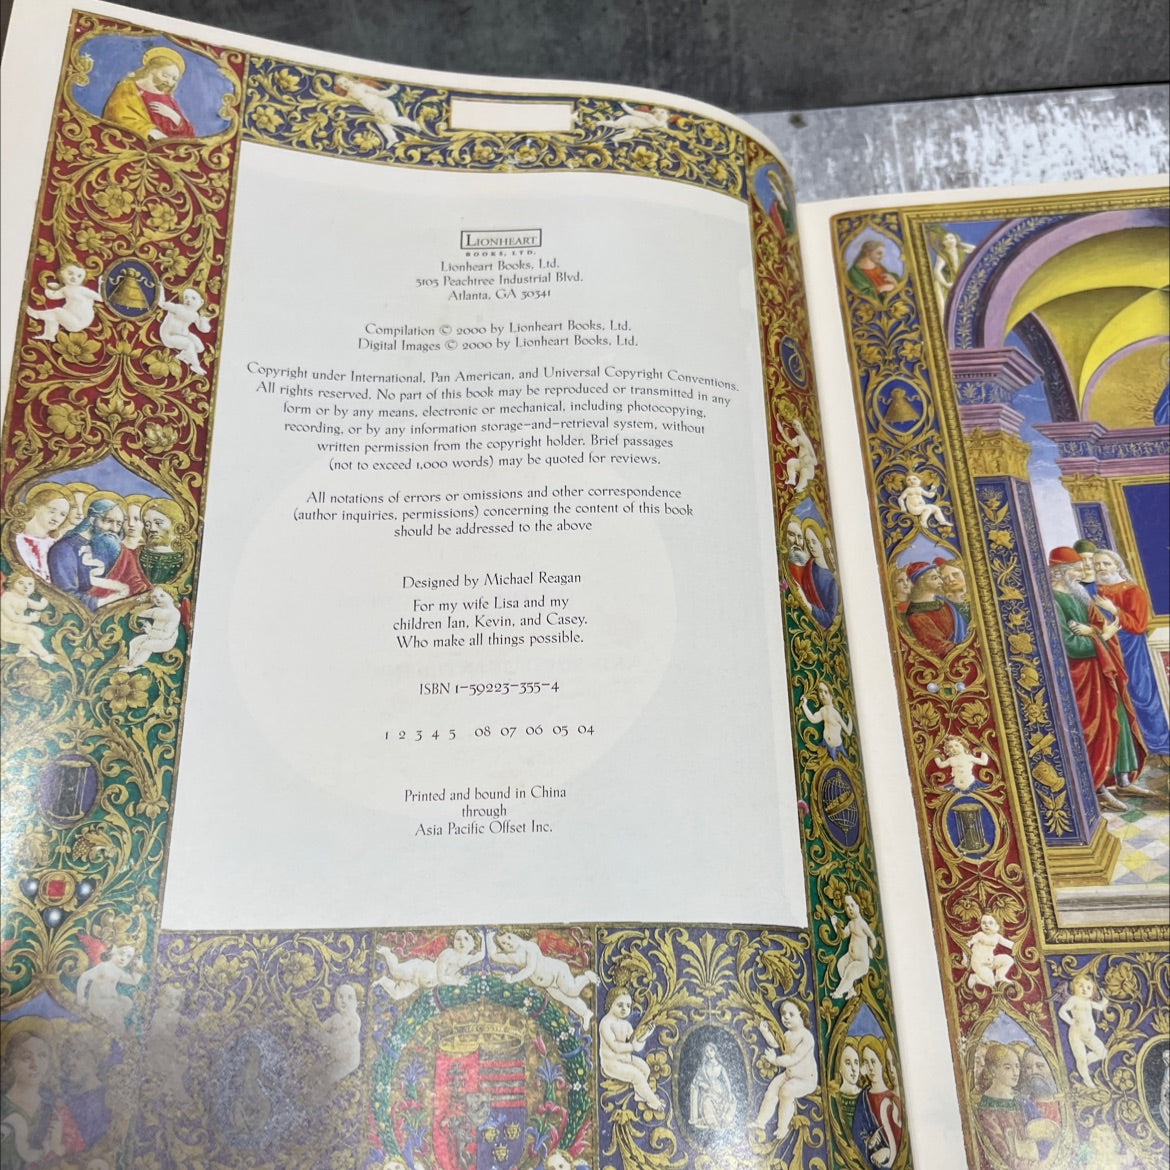 LIONHEART
BOOKS, LTD.
Lionheart Books, Ltd.
5105 Peachtree Industrial Blvd.
Atlanta, GA 30341
Compilation © 2000 by Lionheart Books, Ltd.
Digital Images © 2000 by Lionheart Books, Ltd.
Copyright under International, Pan American, and Universal Copyright Conventions.
All rights reserved. No part of this book may be reproduced or transmitted in any
form or by any means, electronic or mechanical, including photocopying,
recording, or by any information storage-and-retrieval system, without
written permission from the copyright holder. Brief passages
(not to exceed 1,000 words) may be quoted for reviews.
All notations of errors or omissions and other correspondence
(author inquiries, permissions) concerning the content of this book
should be addressed to the above
Designed by Michael Reagan
For my wife Lisa and my
children Ian, Kevin, and Casey.
Who make all things possible.
ISBN 1-59223-355-4
1 2 3 4 5 08 07 06 05 04
Printed and bound in China
through
Asia Pacific Offset Inc.